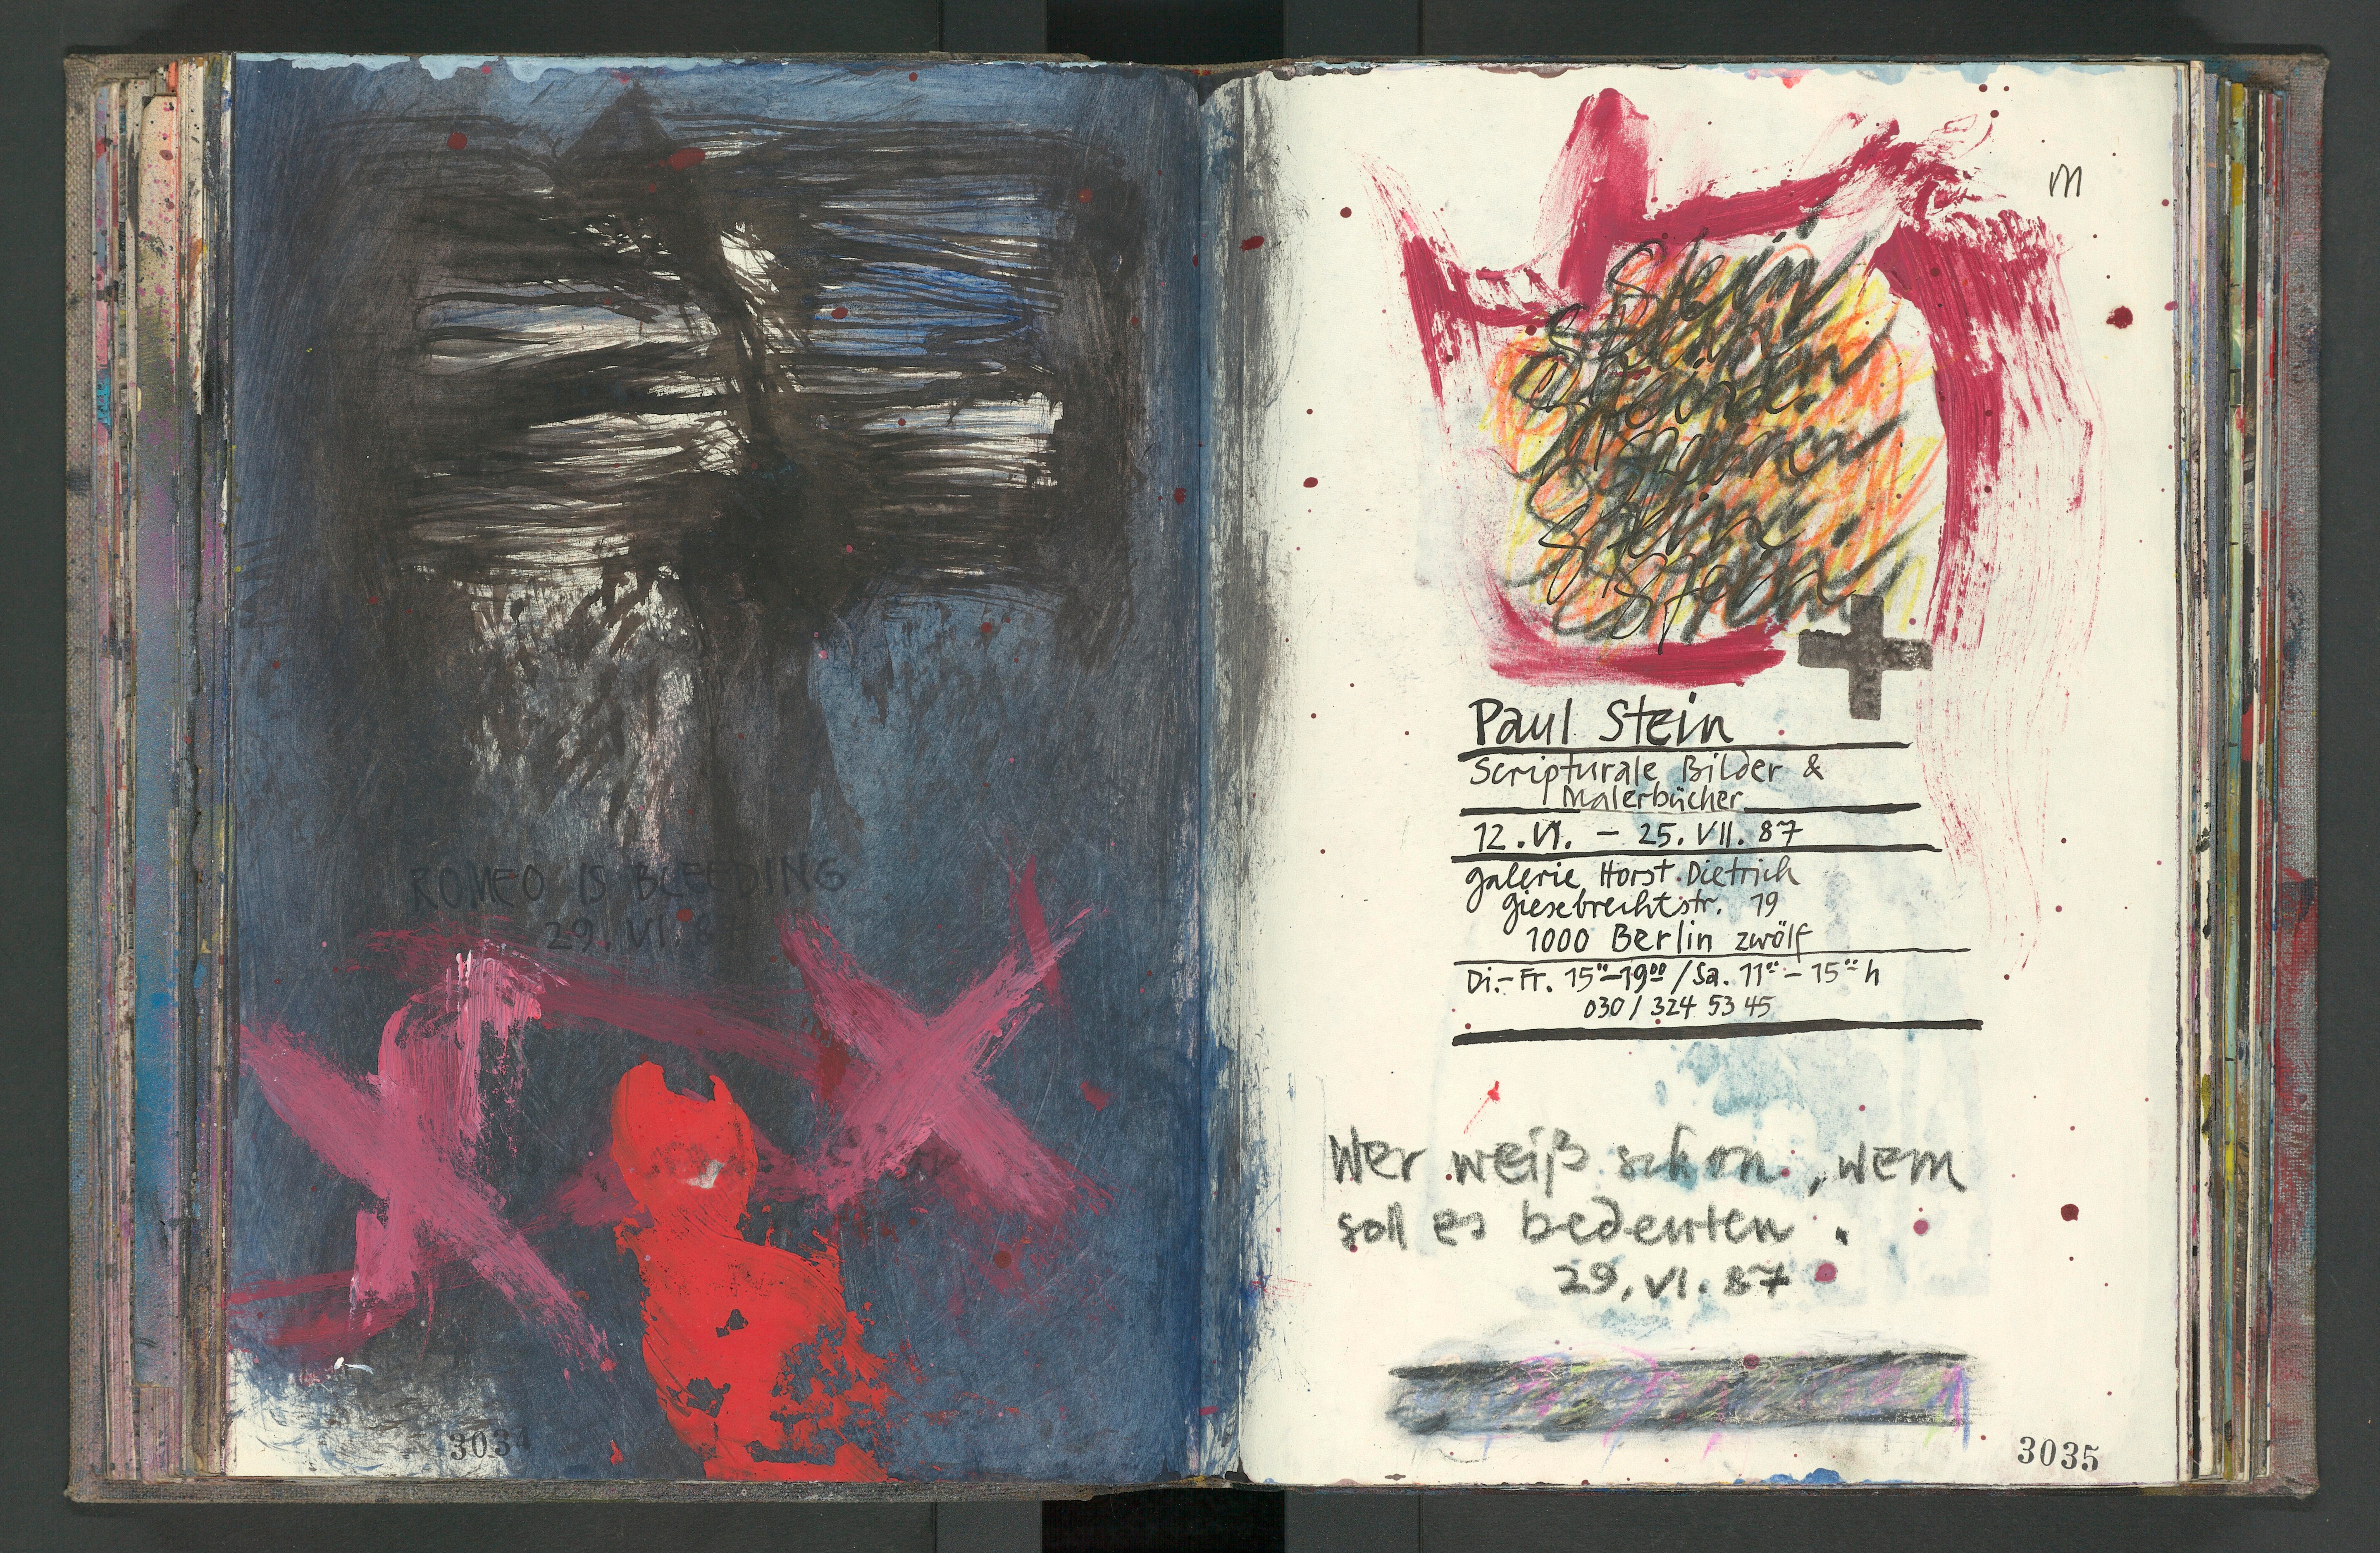 ROMEO IS BLEEDING
29. VI. 8
3034
m
Stein
Stein
Stein
Stein
Paul Stein
Scripturale Bilder &
Malerbücher
12. VI. – 25. VII. 87
Galerie Horst Dietrich
Giesebrechtstr. 19
1000 Berlin zwölf
Di.-Fr. 15⁰⁰–19⁰⁰ / Sa. 11⁰⁰ – 15⁰⁰ h
030 / 324 53 45
Wer weiß schon, wem
soll es bedeuten.
29. VI. 87
3035